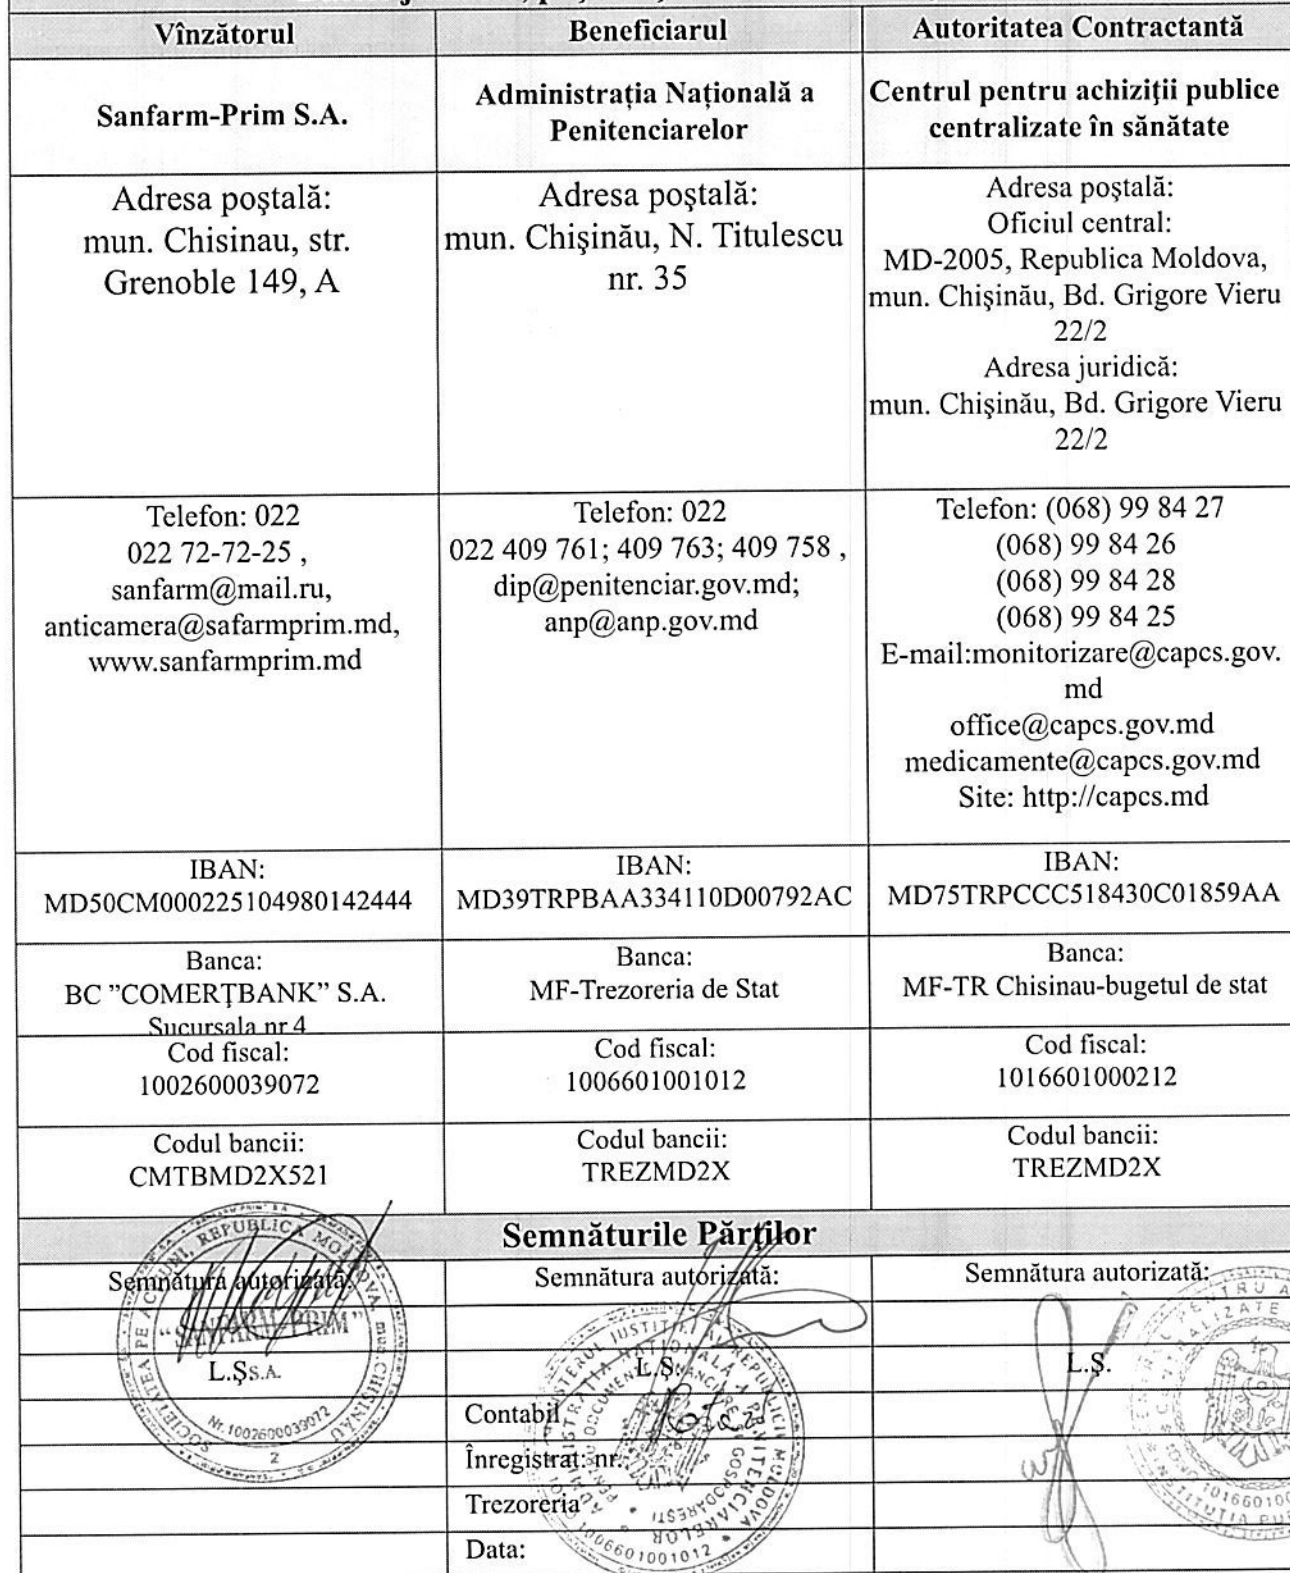 Vînzătorul
Beneficiarul
Autoritatea Contractantă
Sanfarm-Prim S.A.
Administrația Națională a
Penitenciarelor
Centrul pentru achiziţii publice
centralizate în sănătate
Adresa poştală:
mun. Chisinau, str.
Grenoble 149, A
Adresa poştală:
mun. Chişinău, N. Titulescu
nr. 35
Adresa poştală:
Oficiul central:
MD-2005, Republica Moldova,
mun. Chişinău, Bd. Grigore Vieru
22/2
Adresa juridică:
mun. Chişinău, Bd. Grigore Vieru
22/2
Telefon: 022
022 72-72-25 ,
sanfarm@mail.ru,
anticamera@safarmprim.md,
www.sanfarmprim.md
Telefon: 022
022 409 761; 409 763; 409 758 ,
dip@penitenciar.gov.md;
anp@anp.gov.md
Telefon: (068) 99 84 27
(068) 99 84 26
(068) 99 84 28
(068) 99 84 25
E-mail:monitorizare@capcs.gov.
md
office@capcs.gov.md
medicamente@capcs.gov.md
Site: http://capcs.md
IBAN:
MD50CM000225104980142444
IBAN:
MD39TRPBAA334110D00792AC
IBAN:
MD75TRPCCC518430C01859AA
Banca:
BC ”COMERŢBANK” S.A.
Sucursala nr 4
Banca:
MF-Trezoreria de Stat
Banca:
MF-TR Chisinau-bugetul de stat
Cod fiscal:
1002600039072
Cod fiscal:
1006601001012
Cod fiscal:
1016601000212
Codul bancii:
CMTBMD2X521
Codul bancii:
TREZMD2X
Codul bancii:
TREZMD2X
Semnăturile Părţilor
Semnătura autorizată:
Semnătura autorizată:
Semnătura autorizată:
L.Ş.
L.Ş.
L.Ş.
Contabil
Înregistrat: nr.
Trezoreria
Data:
SOCIETATEA PE ACŢIUNI, REPUBLICA MOLDOVA, mun. CHIŞINĂU
“SANFARM-PRIM”
S.A.
Nr. 1002600039072
2
MINISTERUL JUSTIŢIEI AL REPUBLICII MOLDOVA
ADMINISTRAŢIA NAŢIONALĂ A PENITENCIARELOR
PENTRU DOCUMENTE FINANCIARE ŞI GOSPODĂREŞTI
1006601001012